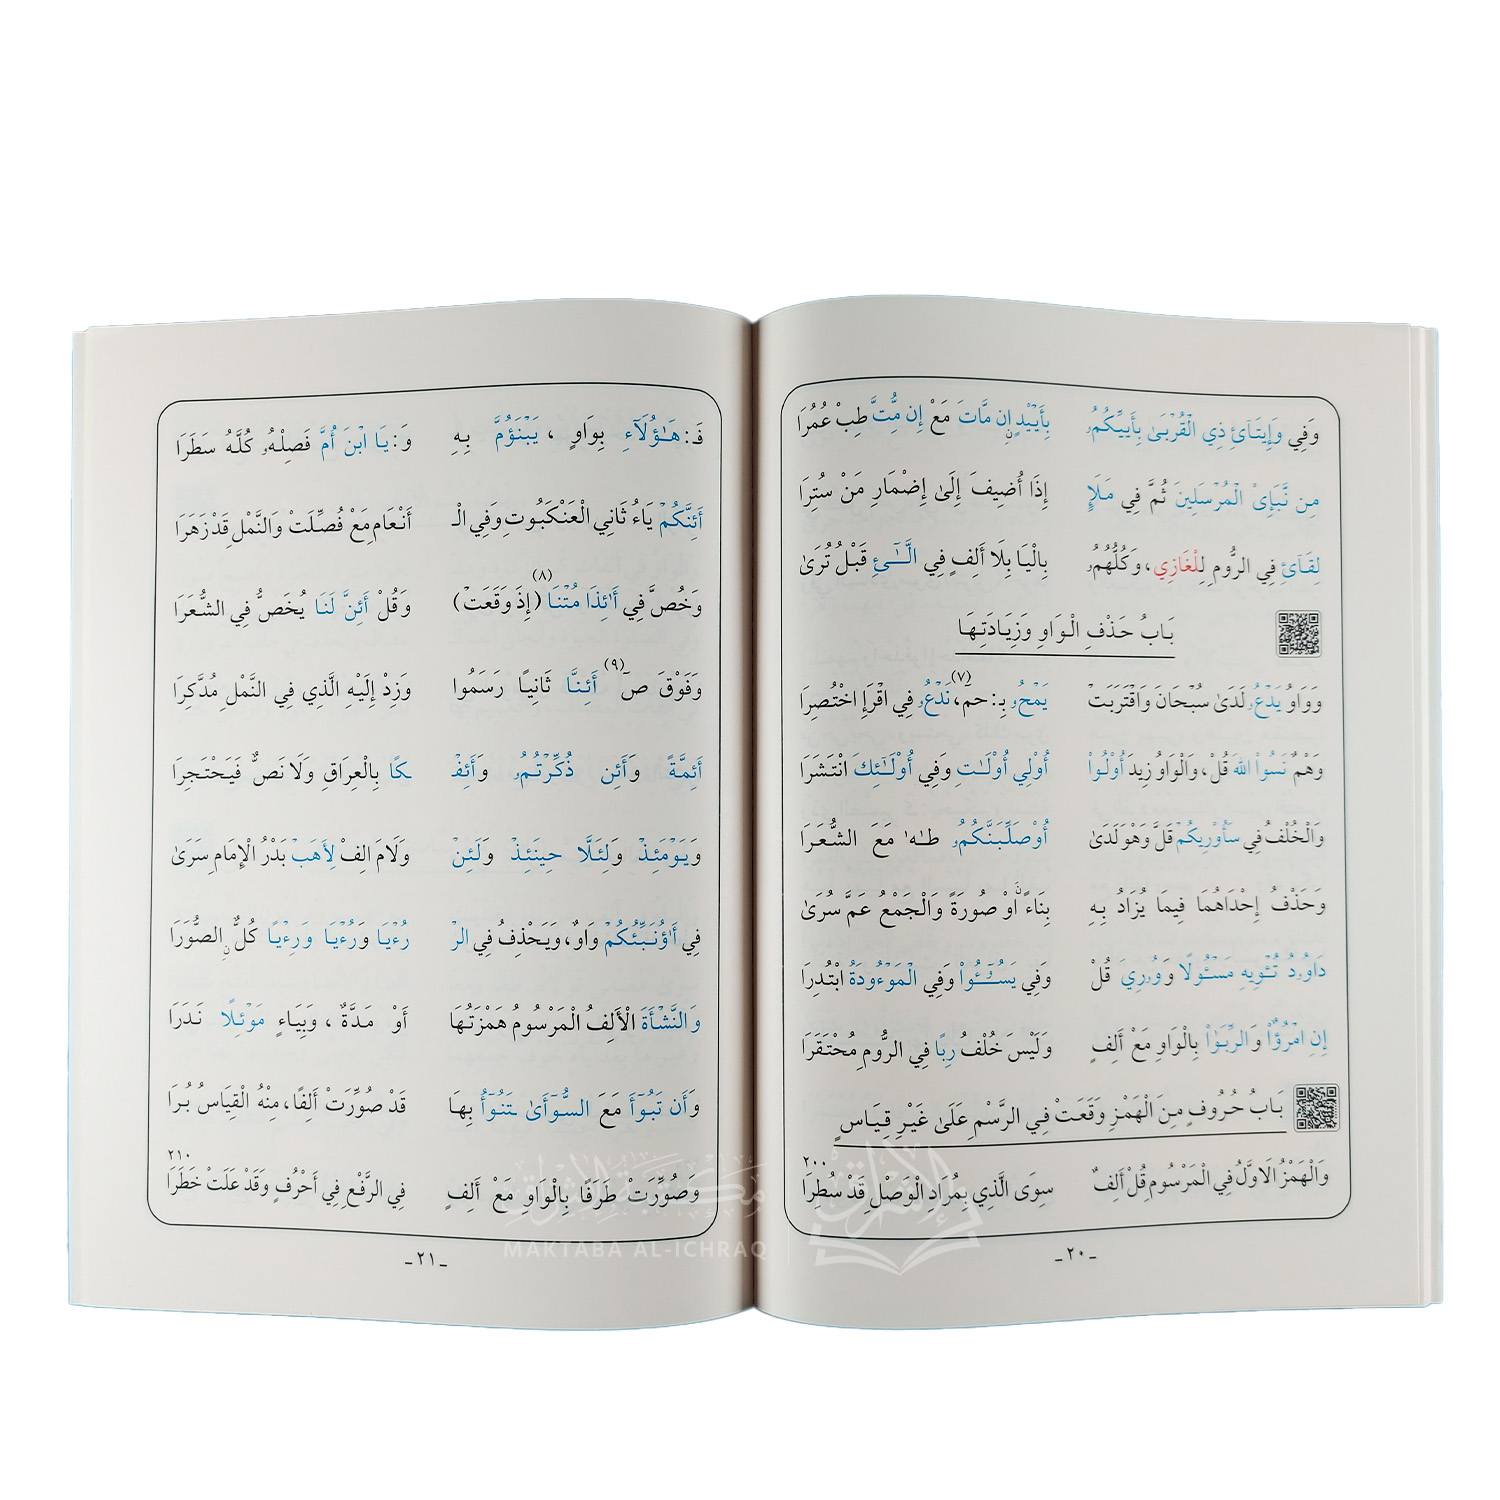 وَفِي وَإِيتَآئِ ذِي الْقُرْبَىٰ بِأَييِّكُمُۥ بِأَييْدٍ اِن مَّاتَ مَعْ إِن مِّتَّ طِبْ عُمُرَا
مِن نَّبَإِيْ الْمُرْسَلِينَ ثُمَّ فِي مَلَإٍ إِذَا أُضِيفَ إِلَىٰ إِضْمَارِ مَنْ سُتِرَا
لِقَآئِ فِي الرُّومِ لِلْغَازِي، وَكُلُّهُمُۥ بِالْيَا بِلَا أَلِفٍ فِي الَّـٰٓـئِ قَبْلُ تُرَىٰ
بَابُ حَذْفِ الْوَاوِ وَزِيَادَتِهَا
وَوَاوُ يَدْعُۥ لَدَىٰ سُبْحَانَ وَاقْتَرَبَتْ يَمْحُۥ بِـ: حم(٧)، نَدْعُۥ فِي اقْرَإِ اخْتُصِرَا
وَهْمُ نَسُوا۟ اللهَ قُلْ، وَالْوَاوُ زِيدَ أُوْلُوا۟ أُوْلِي أُوْلَـٰتِ وَفِي أُوْلَـٰٓئِكَ انْتَشَرَا
وَالْخُلْفُ فِي سَأُوْرِيكُمْ قَلَّ وَهْوَ لَدَىٰ أُوْصَلِّبَنَّكُمُۥ طـٰهٰ مَعَ الشُّعَرَا
وَحَذْفُ إِحْدَاهُمَا فِيمَا يُزَادُ بِهِ بِنَاءً اوْ صُورَةً وَالْجَمْعُ عَمَّ سُرَىٰ
دَاوُۥدُ تُـْٔوِيهِ مَسْـُٔولًا وَوُۥرِيَ قُلْ وَفِي يَسُـُٔوا۟ وَفِي الْمَوْءُودَةُ ابْتُدِرَا
إِنِ امْرُؤٌا۟ وَالرِّبَوٰا۟ بِالْوَاوِ مَعْ أَلِفٍ وَلَيْسَ خُلْفُ رِبًا فِي الرُّومِ مُحْتَقَرَا
بَابُ حُرُوفٍ مِنَ الْهَمْزِ وَقَعَتْ فِي الرَّسْمِ عَلَىٰ غَيْرِ قِيَاسٍ
وَالْهَمْزُ الَاوَّلُ فِي الْمَرْسُومِ قُلْ أَلِفٌ سِوَى الَّذِي بِمُرَادِ الْوَصْلِ قَدْ سُطِرَا ٢٠٠
- ٢٠ -
فَـ: هَـٰٓؤُلَآءِ بِوَاوٍ ، يَبْنَؤُمَّ بِهِ وَ: يَا ابْنَ أُمَّ فَصِلْهُۥ كُلَّهُ سَطَرَا
أَئِنَّكُمْ يَاءُ ثَانِي الْعَنْكَبُوتِ وَفِي الْـ أَنْعَامِ مَعْ فُصِّلَتْ وَالنَّمْلِ قَدْ زَهَرَا
وَخُصَّ فِي أَئِذَا مُتْنَا (إِذَ وَقَعَتْ)(٨) وَقُلْ أَئِنَّ لَنَا يُخَصُّ فِي الشُّعَرَا
وَفَوْقَ صٓ(٩) أَئِنَّا ثَانِيًا رَسَمُوا وَزِدْ إِلَيْهِ الَّذِي فِي النَّمْلِ مُدَّكِرَا
أَئِمَّةً وَأَئِن ذُكِّرْتُمُۥ وَأَئِفْـ ـكًا بِالْعِرَاقِ وَلَا نَصٌّ فَيَحْتَجِرَا
وَيَوْمَئِذْ وَلِئَلَّا حِينَئِذْ وَلَئِنْ وَلَامَ الِفْ لِأَهَبْ بَدْرُ الْإِمَامِ سَرَىٰ
فِي أَؤُنَبِّئُكُمْ وَاوٌ، وَيَحْذِفُ فِي الرْ رُءْيَا وَرُءْيَا وَرِءْيًا كُلٌّ الصُّوَرَا
وَالنَّشْأَةَ الْأَلِفُ الْمَرْسُومُ هَمْزَتُهَا أَوْ مَدَّةٌ ، وَبِيَاءٍ مَوْئِلًا نَدَرَا
وَأَن تَبُوٓأَ مَعَ السُّوٓأَىٰ تَنُوٓأُ بِهَا قَدْ صُوِّرَتْ أَلِفًا، مِنْهُ الْقِيَاسُ بُرَا
وَصُوِّرَتْ طَرَفًا بِالْوَاوِ مَعْ أَلِفٍ فِي الرَّفْعِ فِي أَحْرُفٍ وَقَدْ عَلَتْ خَطَرَا ٢١٠
- ٢١ -
مكتبة الإشراق
MAKTABA AL-ICHRAQ